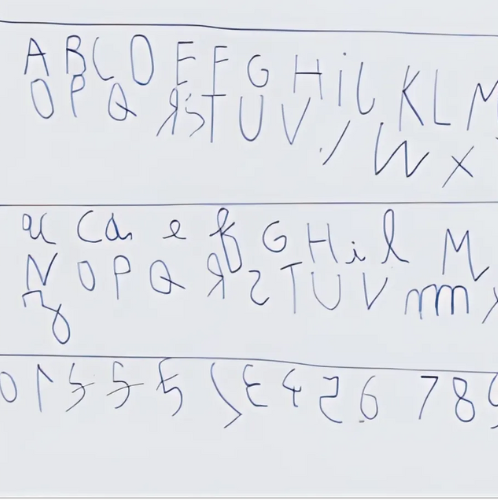 A B C D E F G H i L K L M
O P Q Я S T U V / W X
a c c d e f G H i l M
N O P Q Я S T U V m
z
0 1 5 5 5 2 3 4 2 6 7 8 9